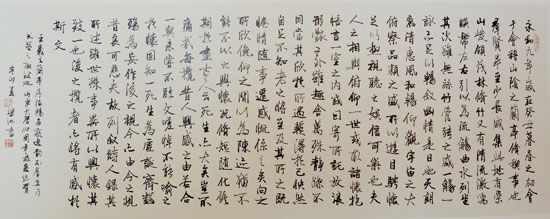 永和九年歲在癸丑暮春之初會
于會稽山陰之蘭亭脩禊事也
群賢畢至少長咸集此地有崇
山峻領茂林脩竹又有清流激湍
暎帶左右引以為流觴曲水列坐
其次雖無絲竹管弦之盛一觴一
詠亦足以暢叙幽情是日也天朗
氣清惠風和暢仰觀宇宙之大
俯察品類之盛所以遊目騁懷
足以極視聽之娛信可樂也夫
人之相與俯仰一世或取諸懷抱
悟言一室之內或因寄所託放浪
形骸之外雖趣舍萬殊靜躁不
同當其欣於所遇暫得於己快然
自足不知老之將至及其所之既
惓情隨事遷感慨係之矣向之
所欣俛仰之間以為陳迹猶不
能不以之興懷況脩短隨化終
期於盡古人云死生亦大矣豈不
痛哉每攬昔人興感之由若合
一契未嘗不臨文嗟悼不能喻之
於懷固知一死生為虛誕齊彭
殤為妄作後之視今亦由今之視
昔悲夫故列叙時人錄其
所述雖世殊事異所以興懷其
致一也後之攬者亦將有感於
斯文